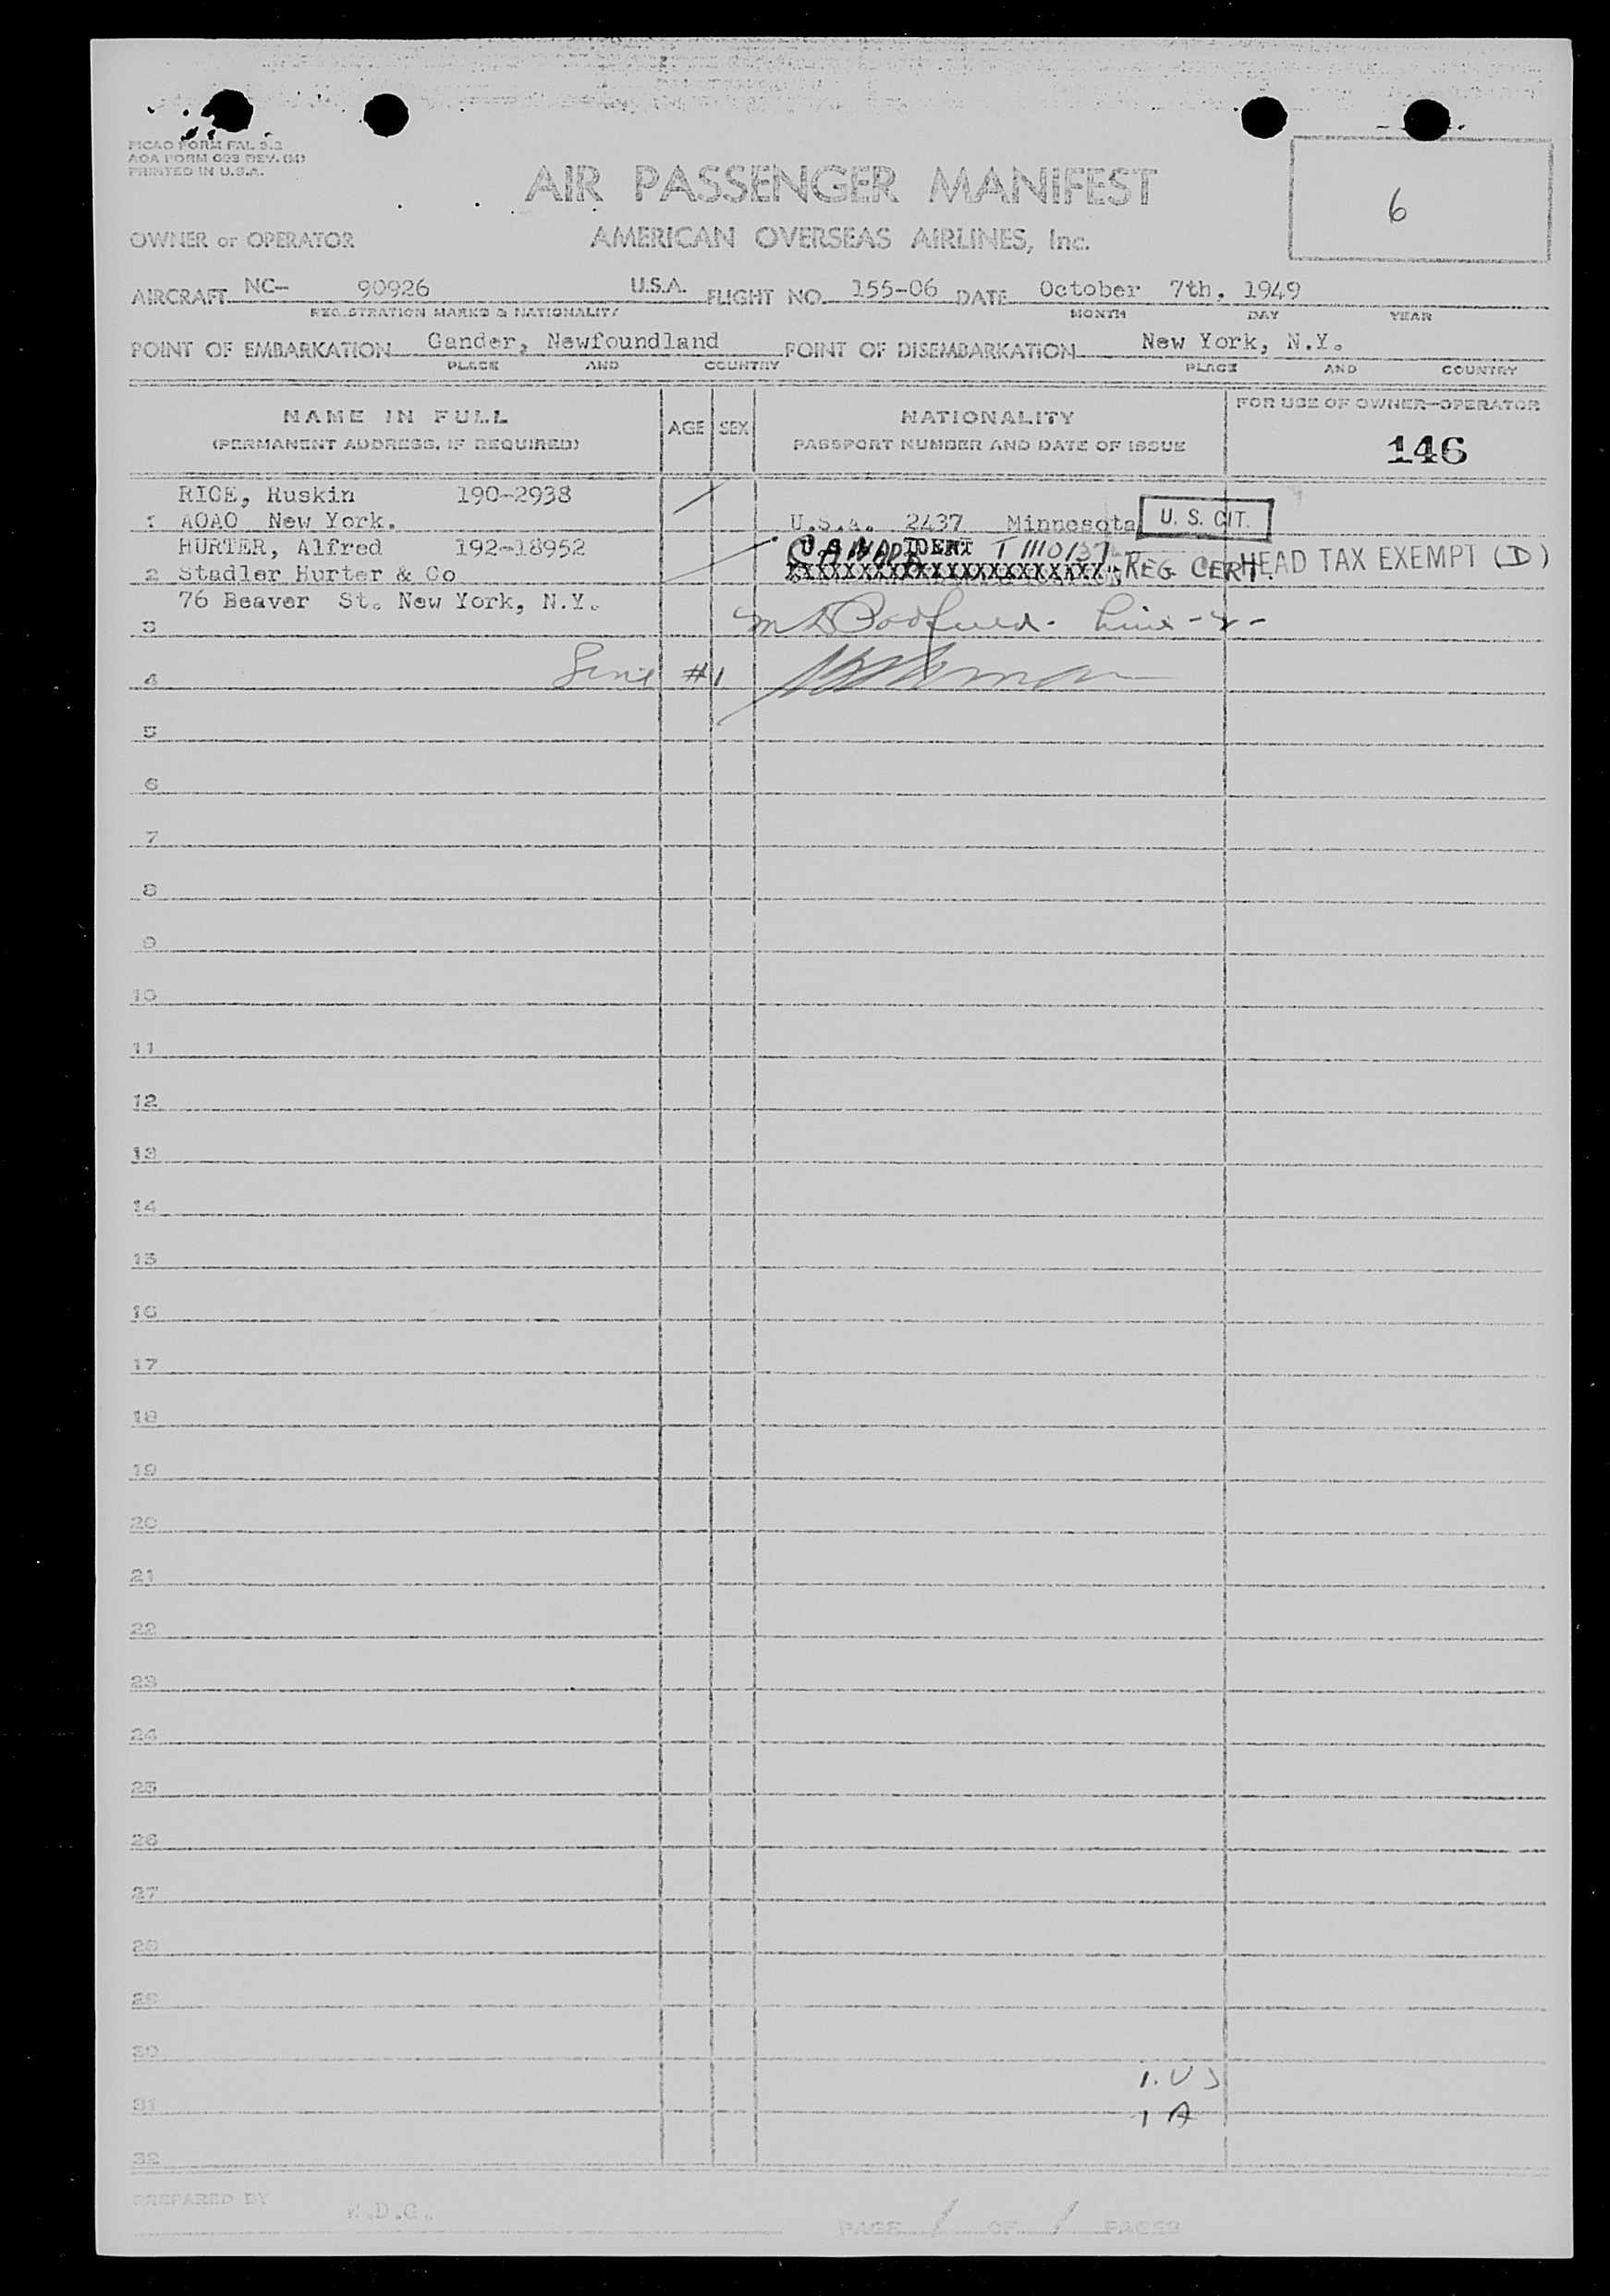 PICAO FORM FAL 3.2
AOA FORM 093 REV. (M)
PRINTED IN U.S.A.
AIR PASSENGER MANIFEST
6
OWNER or OPERATOR AMERICAN OVERSEAS AIRLINES, Inc.
AIRCRAFT NC- 90926 U.S.A. FLIGHT NO. 155-06 DATE October 7th, 1949
REGISTRATION MARKS & NATIONALITY MONTH DAY YEAR
POINT OF EMBARKATION Gander, Newfoundland POINT OF DISEMBARKATION New York, N.Y.
PLACE AND COUNTRY PLACE AND COUNTRY
NAME IN FULL AGE SEX NATIONALITY FOR USE OF OWNER-OPERATOR
(PERMANENT ADDRESS, IF REQUIRED) PASSPORT NUMBER AND DATE OF ISSUE 146
RICE, Ruskin 190-2938
1 AOAO New York. U.S.A. 2437 Minnesota U. S. CIT.
HURTER, Alfred 192-18952 CANADA IDENT
2 Stadler Hurter & Co REG. CERT. HEAD TAX EXEMPT (D)
76 Beaver St. New York, N.Y.
3 Line -2-
4 Line #1
5
6
7
8
9
10
11
12
13
14
15
16
17
18
19
20
21
22
23
24
25
26
27
28
29
30
1. US
31
1 A
32
PREPARED BY W.D.G. PAGE 1 OF 1 PAGES